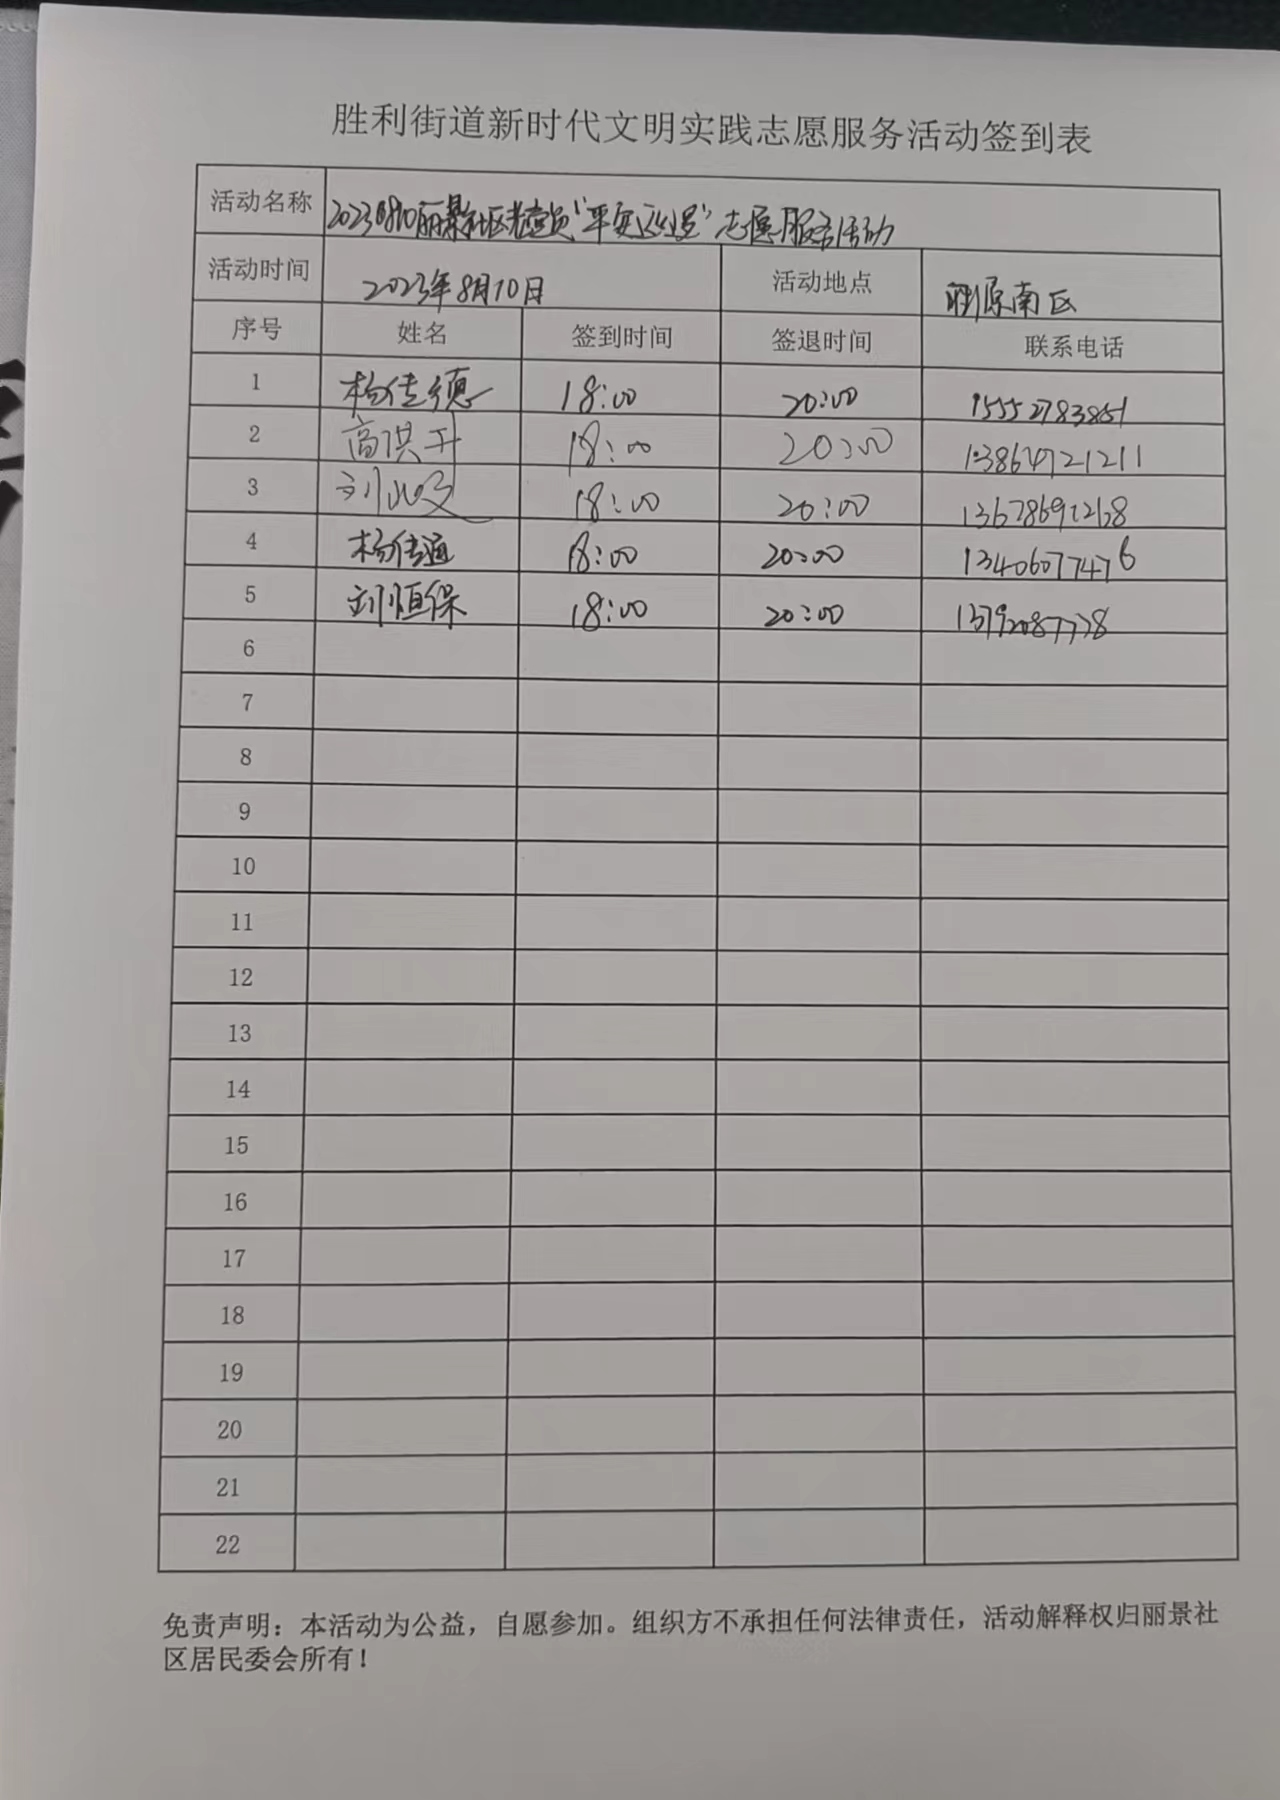 胜利街道新时代文明实践志愿服务活动签到表
活动名称 20230810丽景社区老党员“平安巡逻”志愿服务活动
活动时间 2023年8月10日 活动地点 胜原南区
序号 姓名 签到时间 签退时间 联系电话
1 杨传德 18:00 20:00 15552783851
2 高洪升 18:00 20:00 13864721211
3 刘 18:00 20:00
4 杨传通 18:00 20:00 13406077476
5 刘恒保 18:00 20:00
6
7
8
9
10
11
12
13
14
15
16
17
18
19
20
21
22
免责声明：本活动为公益，自愿参加。组织方不承担任何法律责任，活动解释权归丽景社
区居民委会所有！